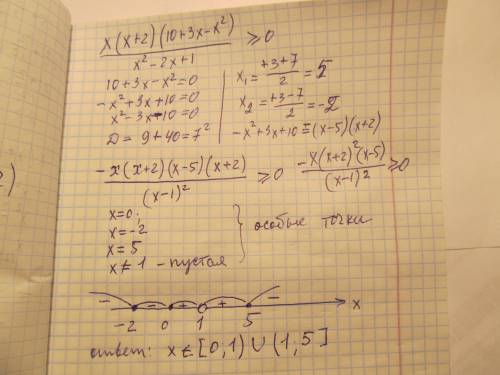 x(x+2)(10+3x-x²)/(x²-2x+1) ≥ 0
10+3x-x²=0
-x²+3x+10=0
x²-3x-10=0
D = 9+40=7²
x₁ = (+3+7)/2 = 5
x₂ = (+3-7)/2 = -2
-x²+3x+10 = (x-5)(x+2)
-x(x+2)(x-5)(x+2)/(x-1)² ≥ 0 -x(x+2)²(x-5)/(x-1)² ≥ 0
x=0;
x=-2
x=5
x≠1 - пустая
} особые точки
- - + + -
-2 0 1 5 x
ответ: x ∈ [0,1) ∪ (1,5]